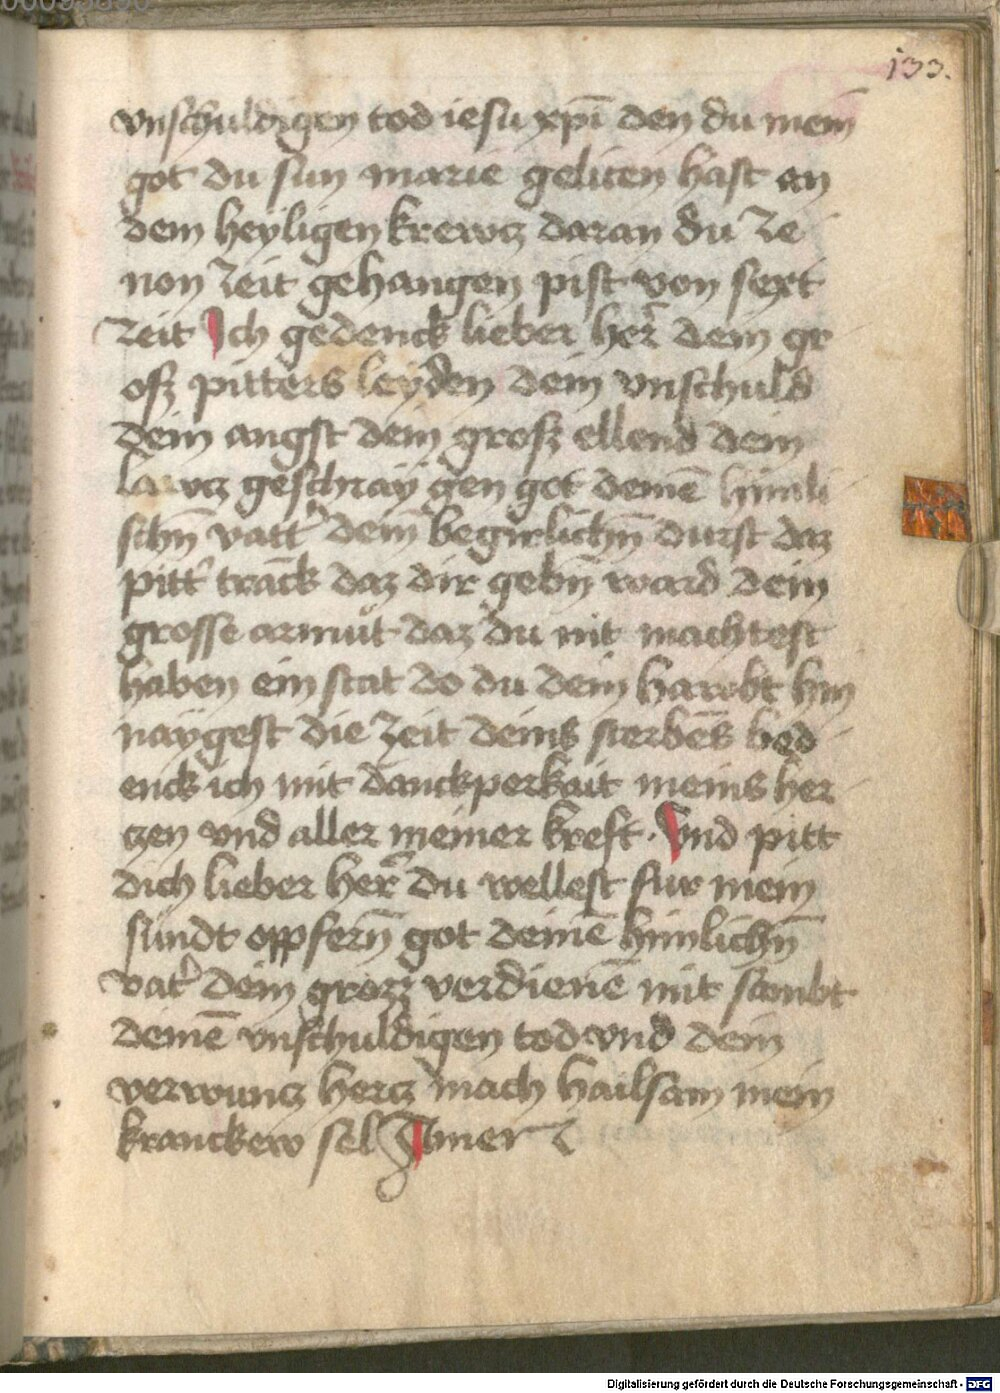 133.
vnschuldigen tod iesu xp̄i den du mein
got du sun marie geliten hast an
dem heyligen krewcz daran du ze
non zeit gehangen pist von sext
zeit Ich gedenck lieber her̄ dein gr
osz pitters leyden dein vnschuld
dein angst dein grosz ellend dein
geschray gen got deinē himli
schn̄ vatt' dein begirlichn̄ durst daz
pitt' tranck daz dir gebn̄ ward dein
grosse armut daz du nit machtest
haben ein stat do du dein hawbt hin
naygest die zeit deins sterbēs bed
enck ich mit danckperkait meins her
czen vnd aller meiner kreft. Vnd pitt
dich lieber her̄ du wellest fur mein
sündt oppfern̄ got deinē himlichn̄
vat' dein grozz verdienē mit sambt
deinē vnschuldigen tod vnd dein
verwuncz hercz mach hailsam mein
kranckew sel
Digitalisierung gefördert durch die Deutsche Forschungsgemeinschaft - DFG